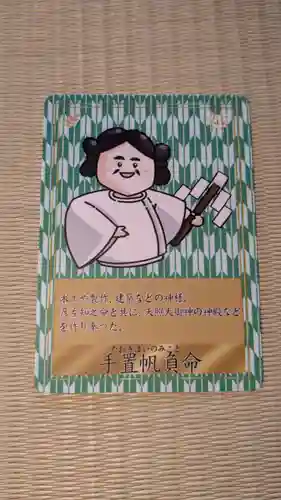 木工や製作、建築などの神様。
彦狭知之命と共に、天照大御神の神殿など
を作り奉った。
たおきほおいのみこと
手置帆負命